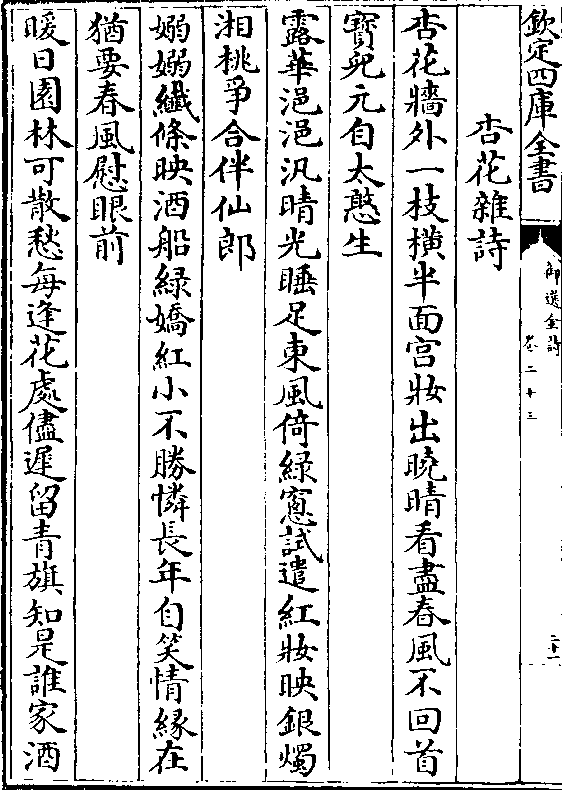 欽定四庫全書
御選金詩
卷二十三
二十一
杏花雜詩
杏花牆外一枝橫半面宫妝出曉晴看盡春風不回首
寳兒元自太憨生
露華浥浥汎晴光睡足東風倚緑窻試遣紅妝映銀燭
湘桃爭合伴仙郎
嫋嫋纖條映酒船緑嬌紅小不勝憐長年自笑情緣在
猶要春風慰眼前
暖日園林可散愁每逢花處儘遲留青旗知是誰家酒